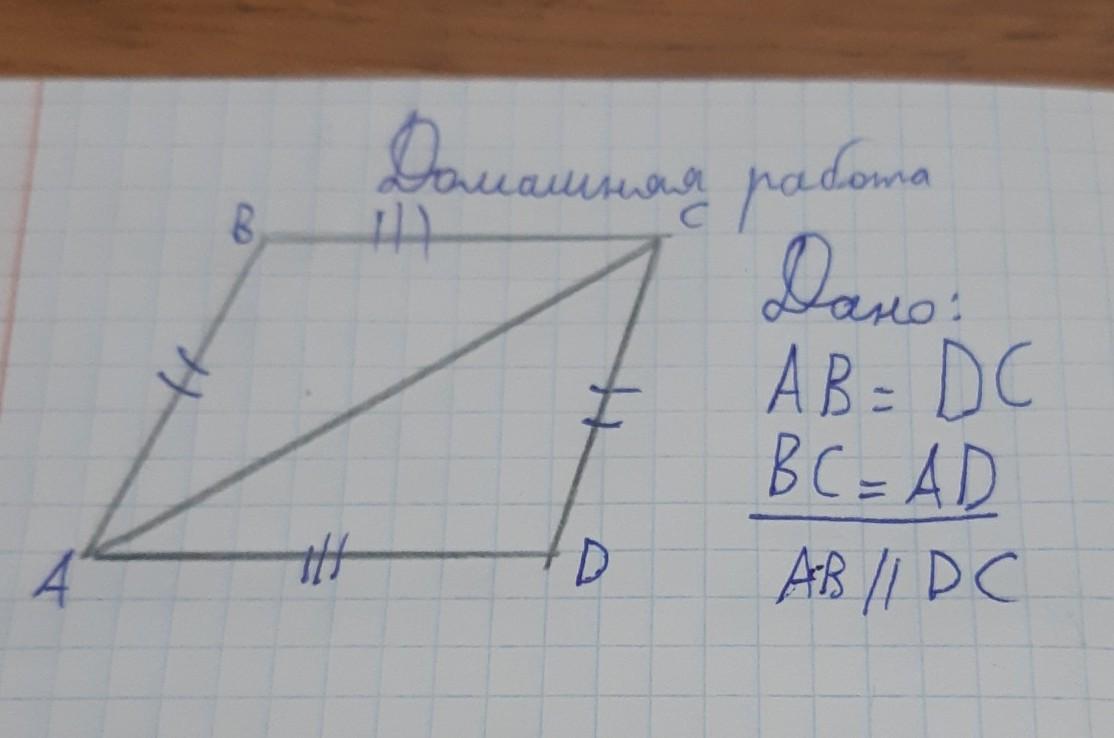 Домашная работа
B C
Дано:
AB = DC
BC = AD
A D
AB // DC